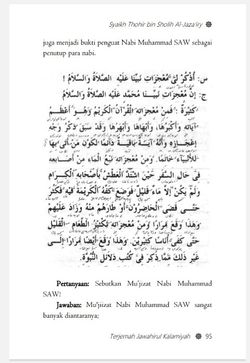 Syaikh Thohir bin Sholih Al-Jaza'iry
juga menjadi bukti penguat Nabi Muhammad SAW sebagai
penutup para nabi.
س: أُذْكُرْ لِيْ مُعْجِزَاتِ نَبِيِّنَا عَلَيْهِ الصَّلَاةُ وَالسَّلَامُ !
ج: إِنَّ مُعْجِزَاتِ نَبِيِّنَا مُحَمَّدٍ عَلَيْهِ الصَّلَاةُ وَالسَّلَامُ
كَثِيْرَةٌ فَمِنْ مُعْجِزَاتِهِ الْقُرْآنُ الْكَرِيْمُ وَهُوَ أَعْظَمُ
آيَاتِهِ وَأَكْبَرُهَا، وَأَبْهَاهَا وَأَبْهَرُهَا وَقَدْ سَبَقَ ذِكْرُ وَجْهِ
إِعْجَازِهِ وَأَنَّهُ آيَةٌ بَاقِيَةٌ دَائِمًا
لِلْأَنْبِيَاءِ خَاتِمًا. وَمِنْ مُعْجِزَاتِهِ نَبْعُ الْمَاءِ مِنْ أَصَابِعِهِ
فِيْ حَالِ السَّفَرِ حِيْنَ اشْتَدَّ الْعَطَشُ بِأَصْحَابِهِ الْكِرَامِ
وَلَمْ يَكُنْ إِلَّا مَاءٌ قَلِيْلٌ فَوَضَعَ كَفَّهُ الْكَرِيْمَةَ فِيْهِ فَكَثُرَ
حَتَّى كَفَى الْحَاضِرِيْنَ وَزَادَ عَلَيْهِمْ
وَهٰذَا وَقَعَ مِرَارًا وَمِنْ مُعْجِزَاتِهِ تَكْثِيْرُ الطَّعَامِ الْقَلِيْلِ
حَتَّى كَفَى أُنَاسًا كَثِيْرِيْنَ. وَهٰذَا وَقَعَ أَيْضًا مِرَارًا إِلَى
غَيْرِ ذٰلِكَ مِمَّا ذُكِرَ فِيْ كُتُبِ دَلَائِلِ النُّبُوَّةِ.
Pertanyaan: Sebutkan Mu'jizat Nabi Muhammad
SAW!
Jawaban: Mu'jizat Nabi Muhammad SAW sangat
banyak diantaranya;
Terjemah Jawahirul Kalamiyah 95